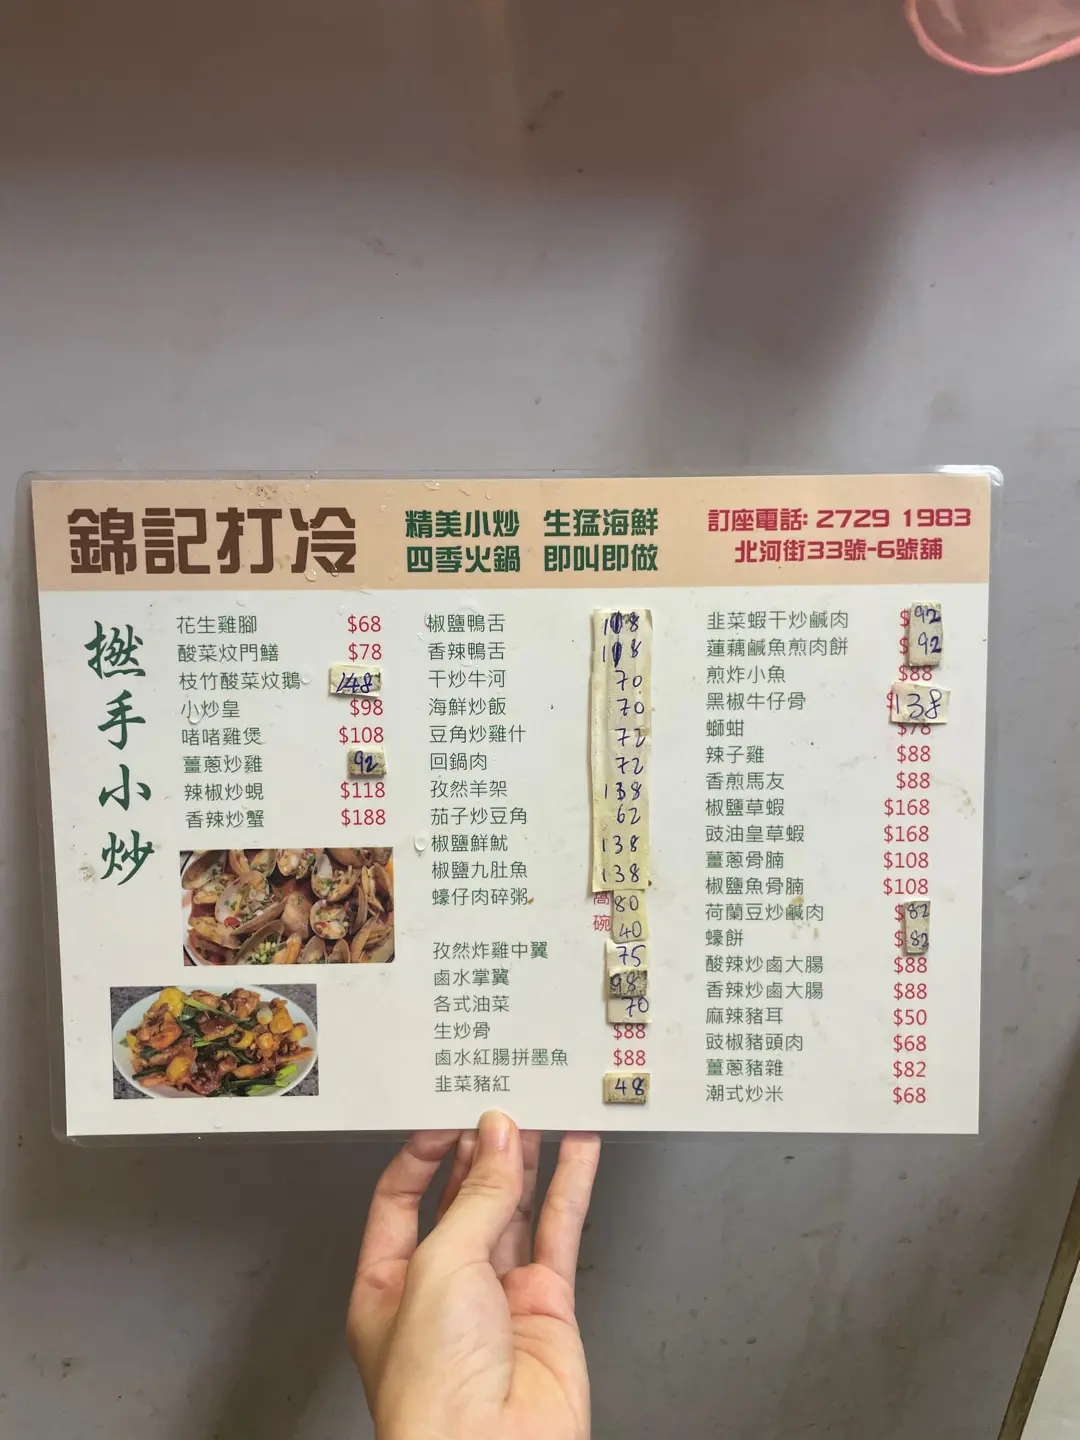 錦記打冷
精美小炒 生猛海鮮
四季火鍋 即叫即做
訂座電話: 2729 1983
北河街33號-6號舖
撚手小炒
花生雞腳 $68
酸菜炆門鱔 $78
枝竹酸菜炆鵝 148
小炒皇 $98
啫啫雞煲 $108
薑蔥炒雞 92
辣椒炒蜆 $118
香辣炒蟹 $188
椒鹽鴨舌 108
香辣鴨舌 108
干炒牛河 70
海鮮炒飯 70
豆角炒雞什 72
回鍋肉 72
孜然羊架 138
茄子炒豆角 62
椒鹽鮮魷 138
椒鹽九肚魚 138
蠔仔肉碎粥 窩 80
碗 40
孜然炸雞中翼 75
鹵水掌翼 98
各式油菜 70
生炒骨 $88
鹵水紅腸拼墨魚 $88
韭菜豬紅 48
韭菜蝦干炒鹹肉 $92
蓮藕鹹魚煎肉餅 $92
煎炸小魚 $88
黑椒牛仔骨 $138
螄蚶 $78
辣子雞 $88
香煎馬友 $88
椒鹽草蝦 $168
豉油皇草蝦 $168
薑蔥骨腩 $108
椒鹽魚骨腩 $108
荷蘭豆炒鹹肉 $82
蠔餅 $82
酸辣炒鹵大腸 $88
香辣炒鹵大腸 $88
麻辣豬耳 $50
豉椒豬頭肉 $68
薑蔥豬雜 $82
潮式炒米 $68